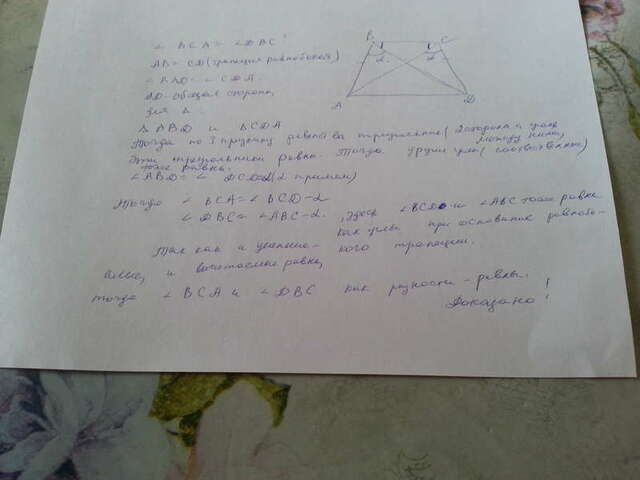 ∠ BCA = ∠DBC
AB = CD (трапеция равнобокая)
∠ BAD = ∠ CDA.
AD - общая сторона
для Δ
Δ ABD и ΔCDA
B C
1 1
α α
A D
Тогда по I признаку равенства треугольников (2 стороны и угол между ними)
Эти треугольники равны. Тогда другие углы (соответственные)
тоже равны.
∠ABD = ∠ (α примем)
Тогда ∠ BCA = ∠ BCD - α
∠ DBC = ∠ABC - α. , Здесь ∠BCD и ∠ABC тоже равны
как углы при основании равнобо-
кого трапеции.
Так как и уменьшае-
мые, и вычитаемые равны,
тогда ∠ BCA и ∠ DBC как разности - равны.
Доказано!